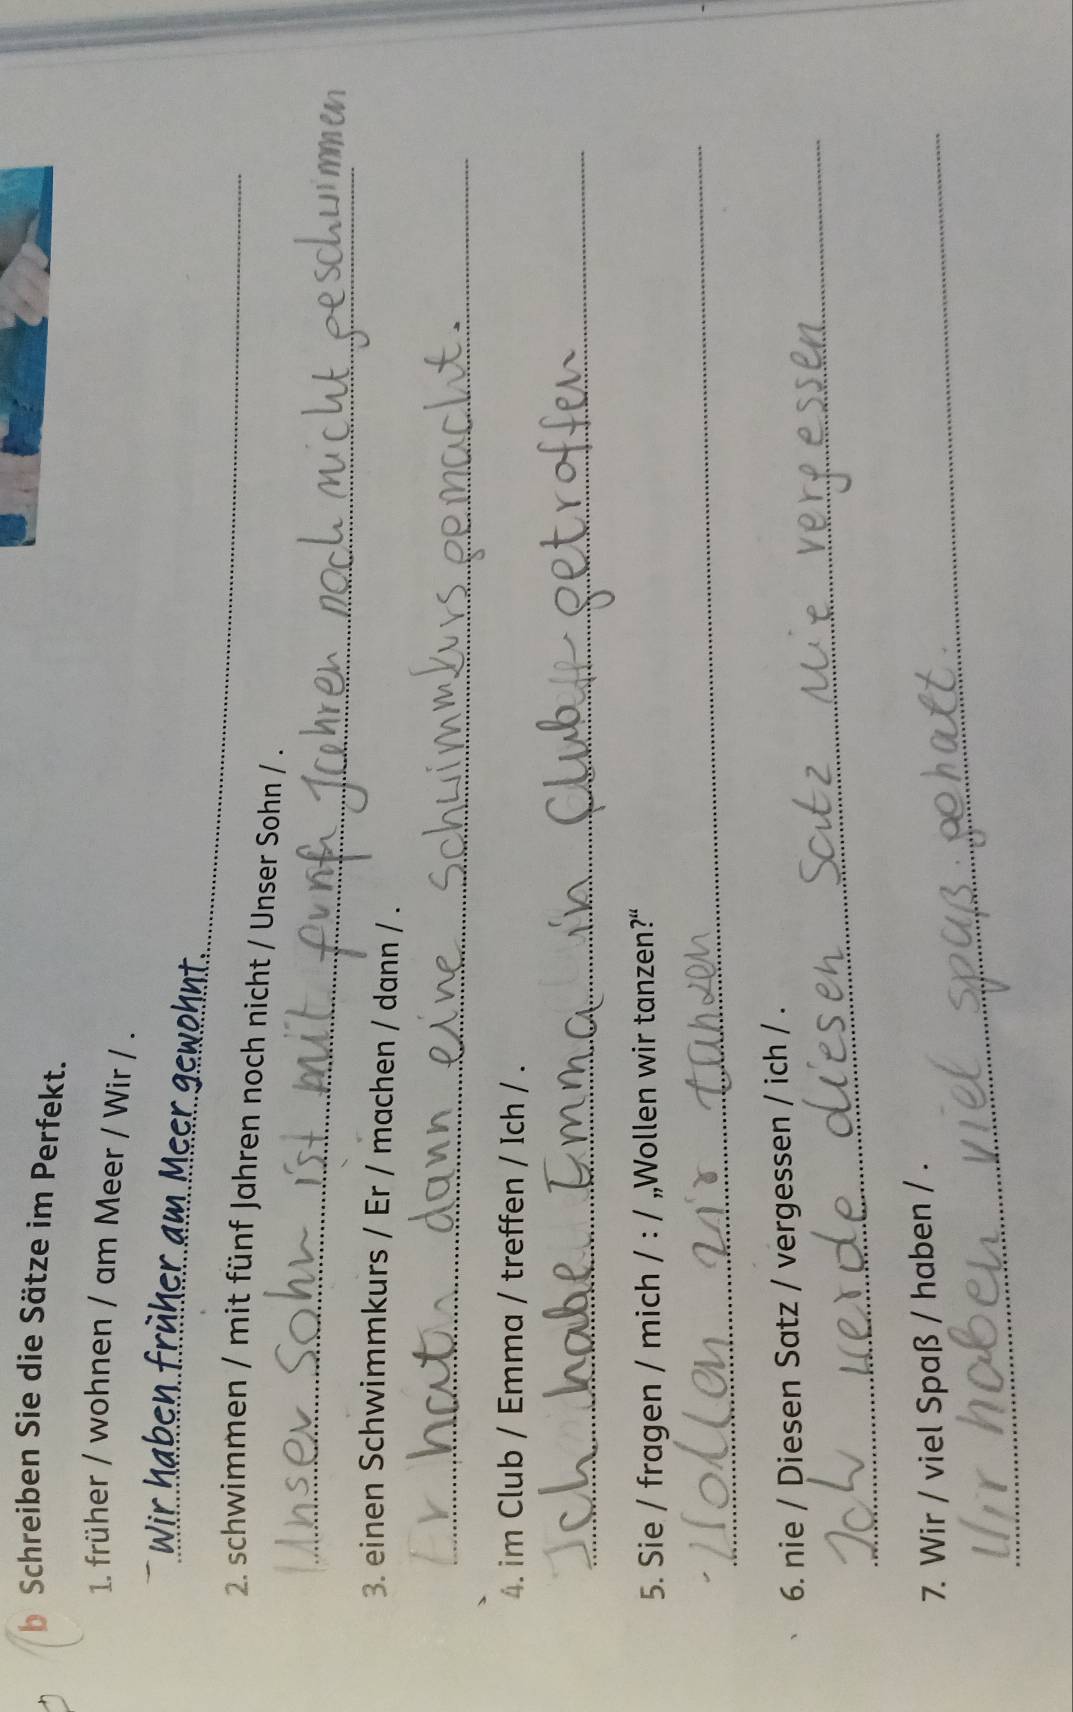 b Schreiben Sie die Sätze im Perfekt.
1. früher / wohnen / am Meer / Wir / .
Wir haben früher am Meer gewohnt.
2. schwimmen / mit fünf Jahren noch nicht / Unser Sohn / .
Unser Sohn ist mit funf Jahren noch nicht geschwimmen
3. einen Schwimmkurs / Er / machen / dann / .
Er hat dann eine Schwimmkurs gemacht.
4. im Club / Emma / treffen / Ich / .
Ich habe Emma in Club getroffen
5. Sie / fragen / mich / : / „Wollen wir tanzen?“
Wollen wir tanzen
6. nie / Diesen Satz / vergessen / ich / .
Ich werde diesen Satz nie vergessen
7. Wir / viel Spaß / haben / .
Wir haben viel spaß gehatt.